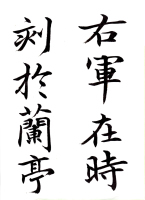 右軍在時
刻於蘭亭